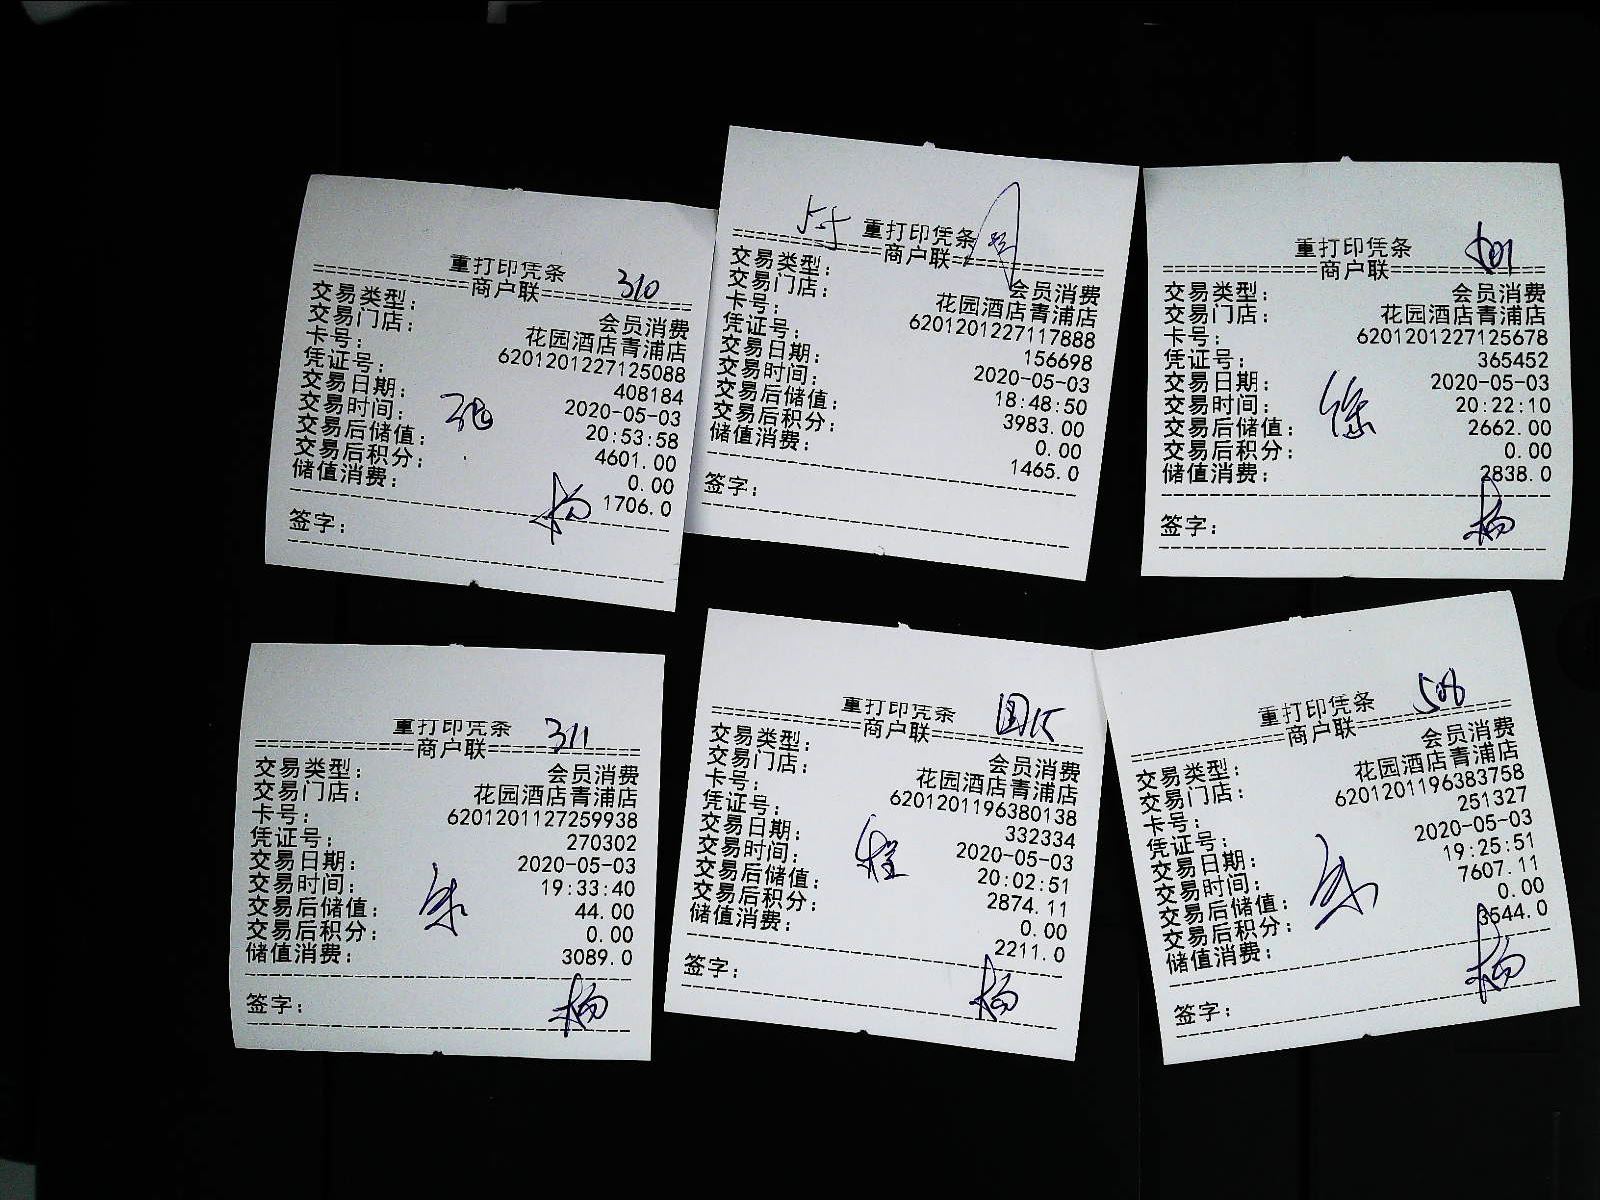 重打印凭条 310
商户联
交易类型： 会员消费
交易门店： 花园酒店青浦店
卡号： 6201201227125088
凭证号： 408184
交易日期： 2020-05-03
交易时间： 20:53:58
交易后储值： 4601.00
交易后积分： 0.00
储值消费： 1706.0
签字： 杨
重打印凭条
商户联
交易类型： 会员消费
交易门店： 花园酒店青浦店
卡号： 6201201227117888
凭证号： 156698
交易日期： 2020-05-03
交易时间： 18:48:50
交易后储值： 3983.00
交易后积分： 0.00
储值消费： 1465.0
签字：
重打印凭条
商户联
交易类型： 会员消费
交易门店： 花园酒店青浦店
卡号： 6201201227125678
凭证号： 365452
交易日期： 2020-05-03
交易时间： 20:22:10
交易后储值： 2662.00
交易后积分： 0.00
储值消费： 2838.0
签字： 杨
重打印凭条 311
商户联
交易类型： 会员消费
交易门店： 花园酒店青浦店
卡号： 6201201127259938
凭证号： 270302
交易日期： 2020-05-03
交易时间： 19:33:40
交易后储值： 44.00
交易后积分： 0.00
储值消费： 3089.0
签字： 杨
重打印凭条
商户联
交易类型： 会员消费
交易门店： 花园酒店青浦店
卡号： 6201201196380138
凭证号： 332334
交易日期： 2020-05-03
交易时间： 20:02:51
交易后储值： 2874.11
交易后积分： 0.00
储值消费： 2211.0
签字： 杨
重打印凭条
商户联
交易类型： 会员消费
交易门店： 花园酒店青浦店
卡号： 6201201196383758
凭证号： 251327
交易日期： 2020-05-03
交易时间： 19:25:51
交易后储值： 7607.11
交易后积分： 0.00
储值消费： 3544.0
签字： 杨